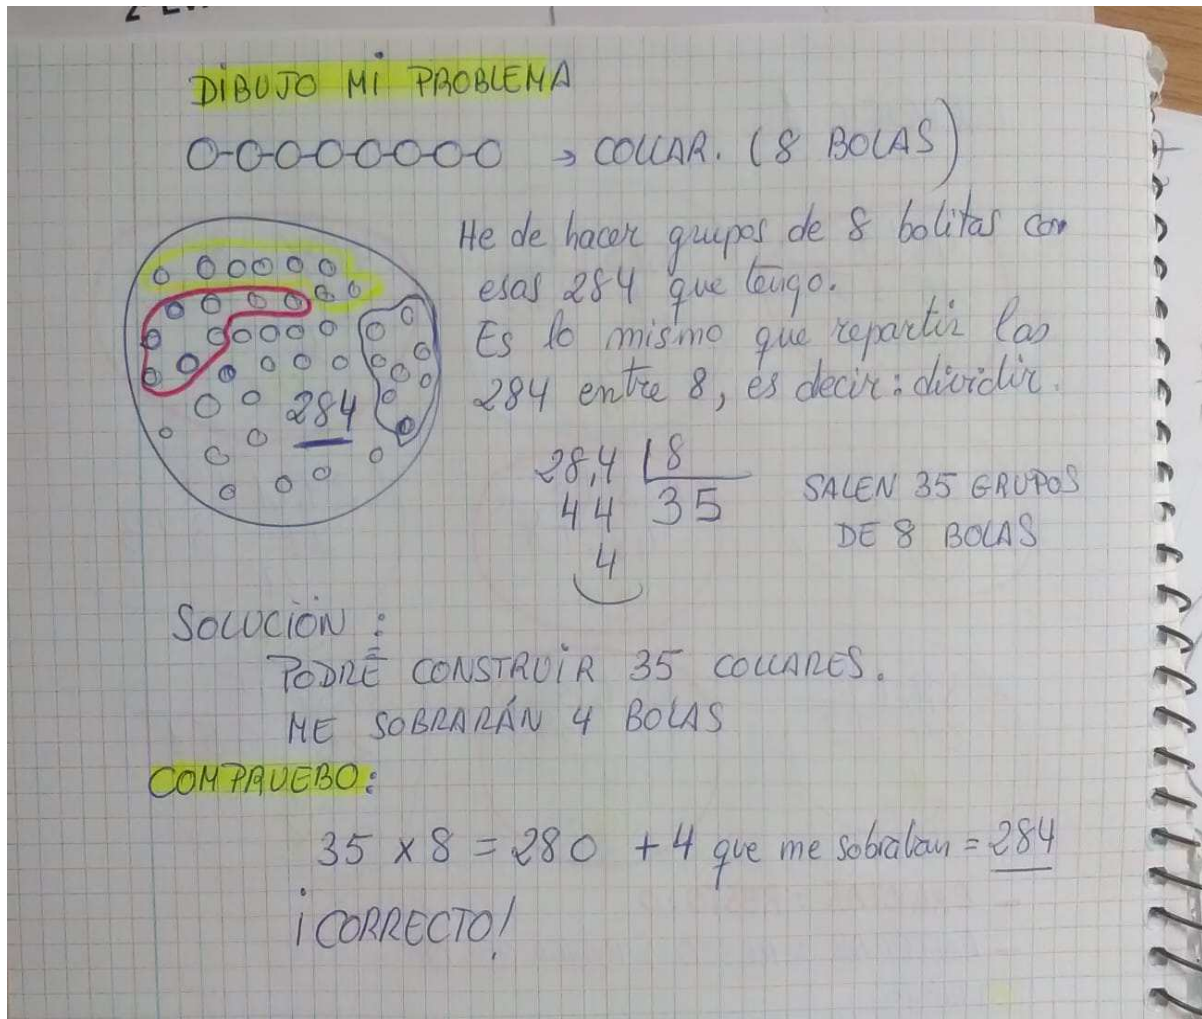 DIBUJO MI PROBLEMA
→ COLLAR. (8 BOLAS)
He de hacer grupos de 8 bolitas con
esas 284 que tengo.
Es lo mismo que repartir las
284 entre 8, es decir: dividir.
284
28,4 | 8
44 35
4
SALEN 35 GRUPOS
DE 8 BOLAS
SOLUCIÓN:
PODRÉ CONSTRUIR 35 COLLARES.
ME SOBRARÁN 4 BOLAS
COMPRUEBO:
35 x 8 = 280 + 4 que me sobraban = 284
¡CORRECTO!